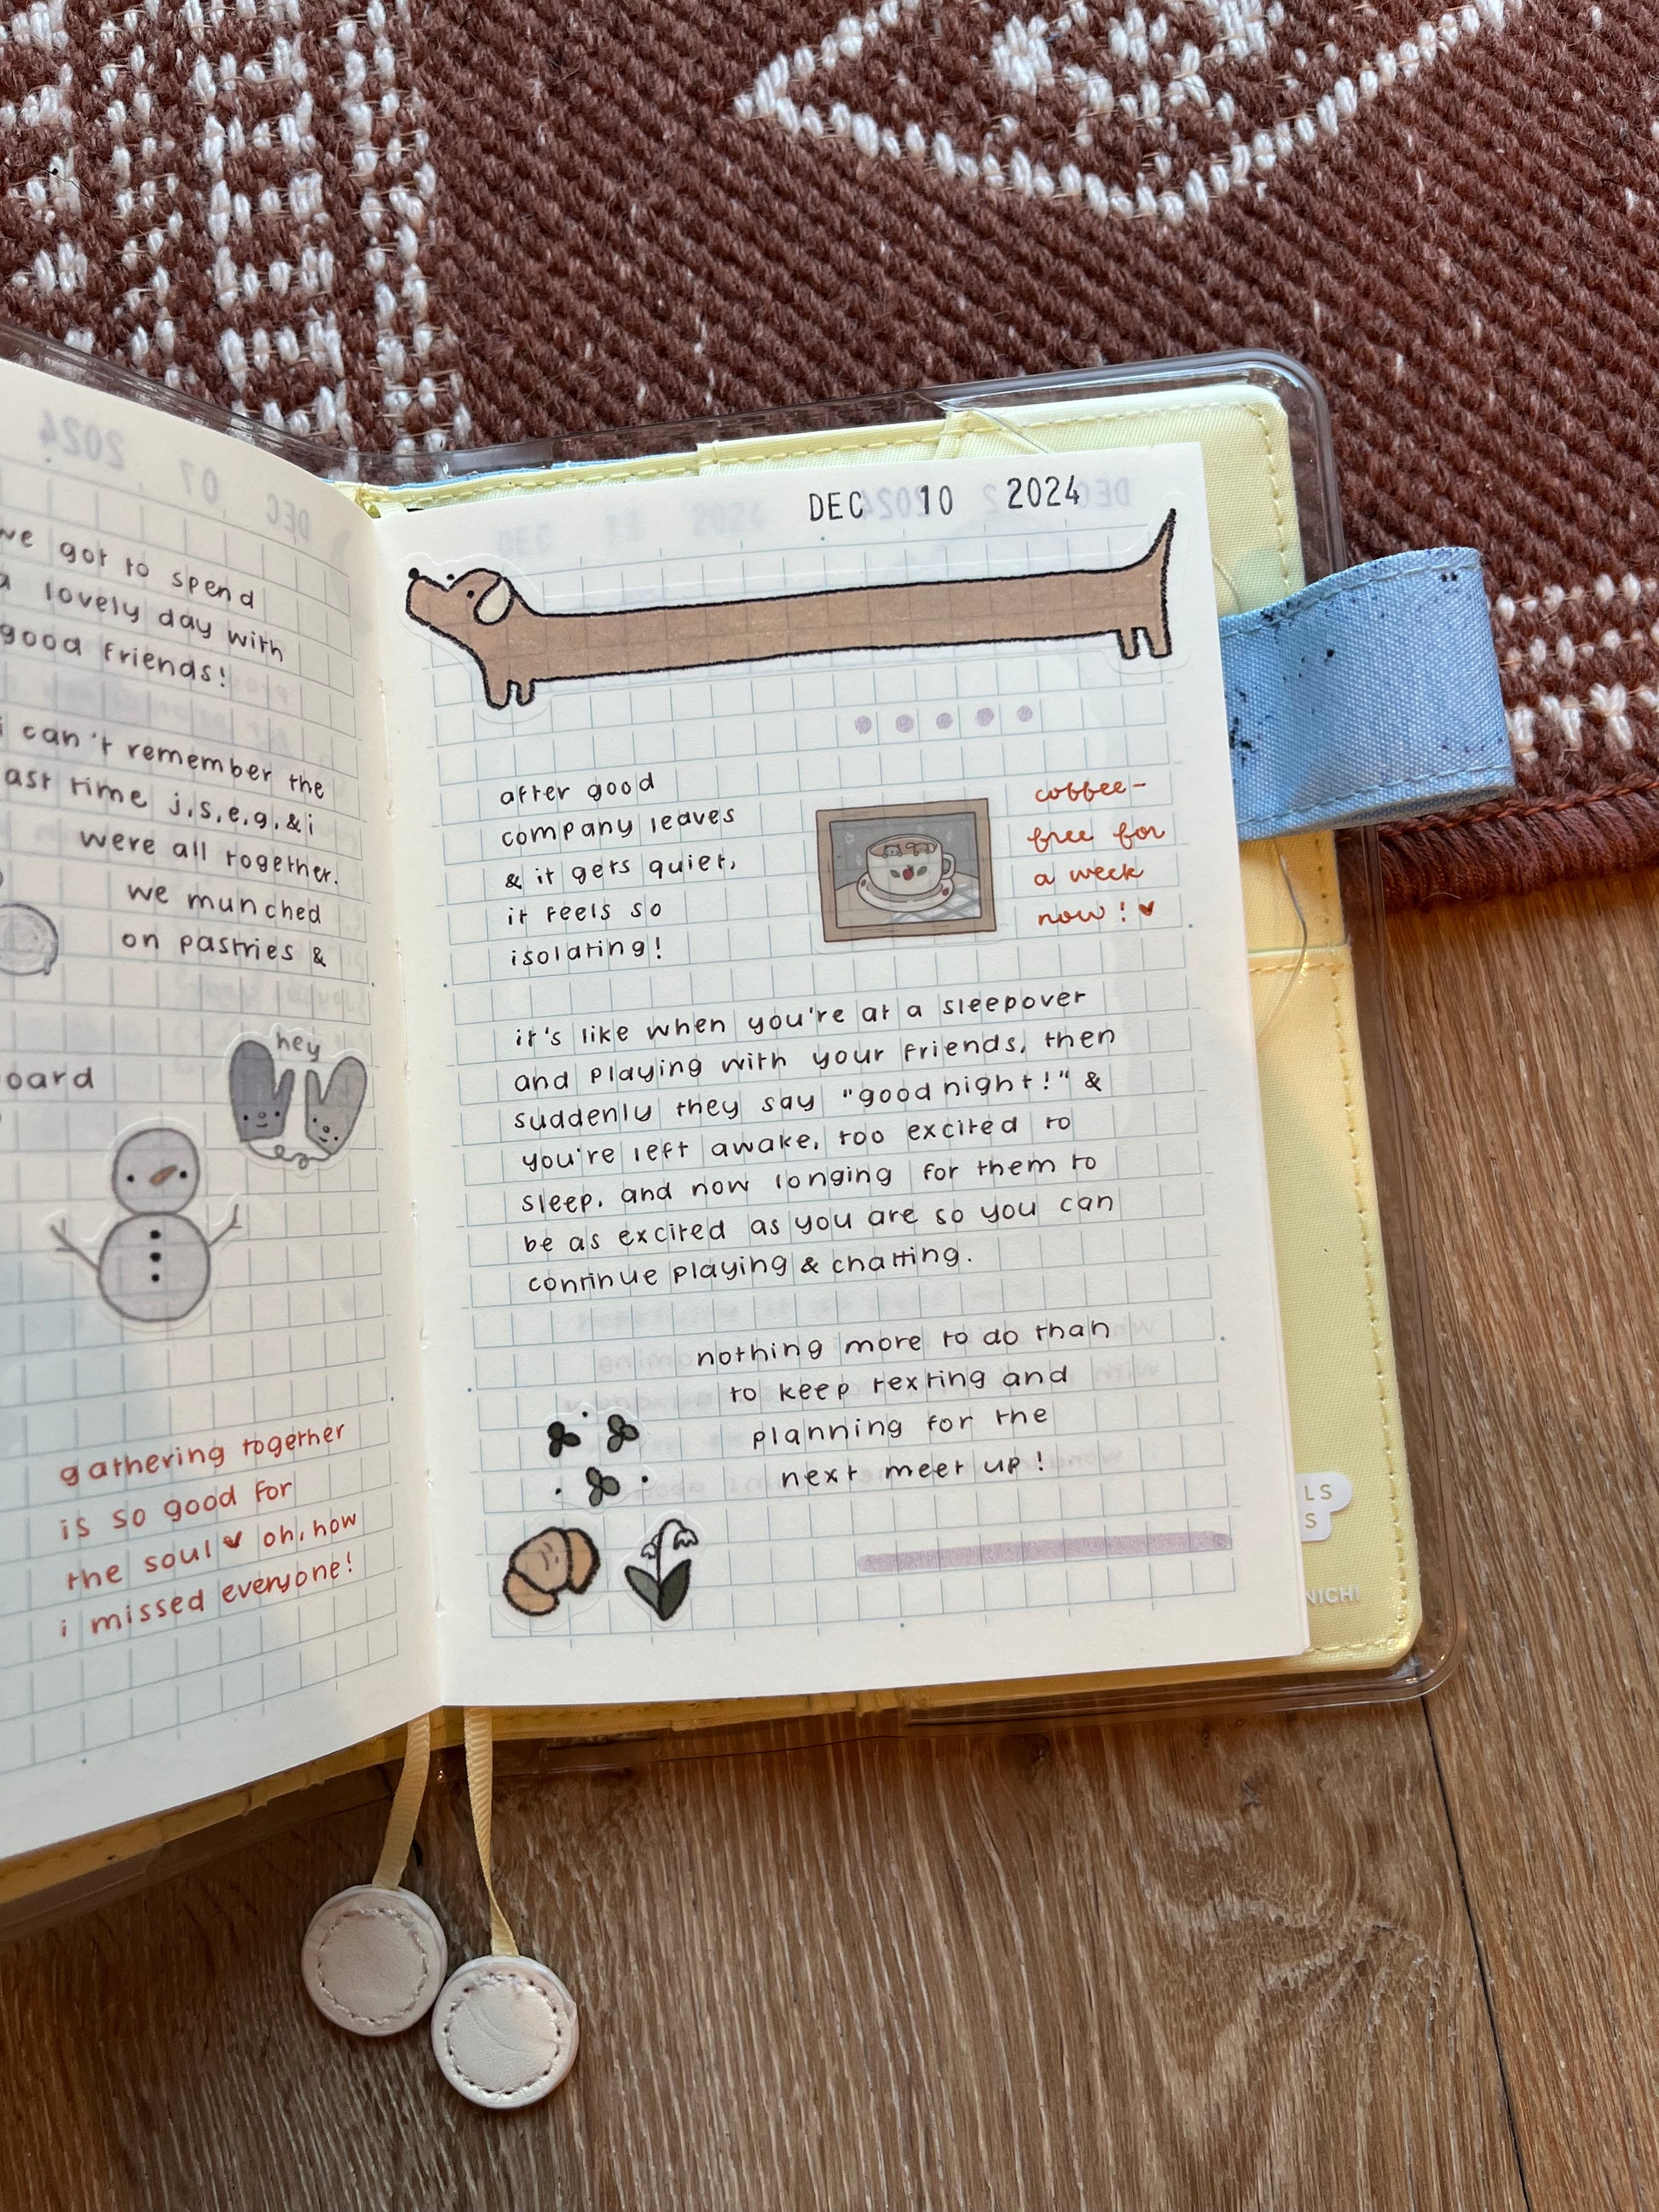 DEC 07 2024
we got to spend
a lovely day with
good friends!
i can't remember the
ast time j,s,e,g,&i
were all together.
we munched
on pastries &
hey
oard
gathering together
is so good for
the soul♥ oh, how
i missed everyone!
DEC 10 2024
after good
company leaves
& it gets quiet,
it feels so
isolating!
coffee-
free for
a week
now!♥
it's like when you're at a sleepover
and playing with your friends, then
suddenly they say "good night!" &
you're left awake, too excited to
sleep, and now longing for them to
be as excited as you are so you can
continue playing & chatting.
nothing more to do than
to keep texting and
planning for the
next meet up!
LS
S
NICHI